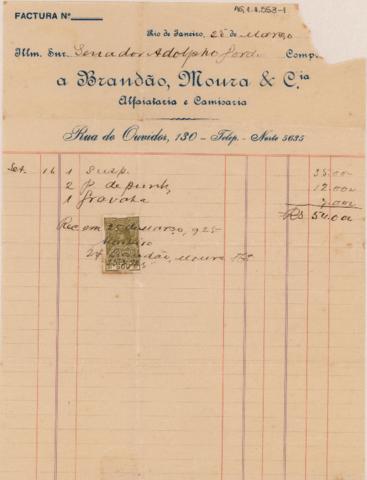 AG.1.1.553-1
FACTURA Nº
Rio de Janeiro, 25 de Março
Illm. Snr. Senador Adolpho Gordo Comp.
a Brandão, Moura & Cia
Alfaiataria e Camisaria
Rua do Ouvidor, 130 - Telep. - Norte 5635
Set. 16 1 Susp. 35.000
2 P. de punhos 12.000
1 Gravata 7.000
Rs 54.000
Rec em 25 de Março, 925
Brandão, Moura